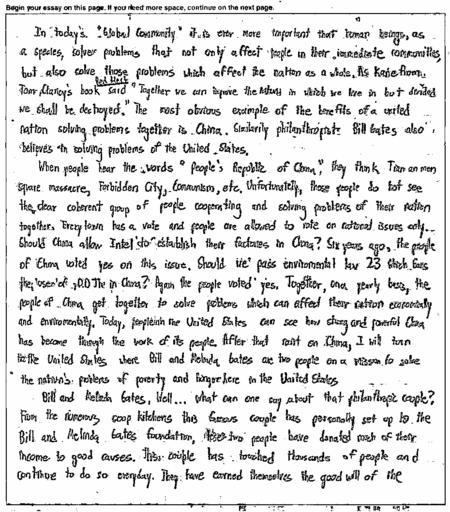 Begin your essay on this page. If you need more space, continue on the next page.
In today's "Global Community" it is ever more important that human beings, as
a species, solve problems that not only affect people in their immediate communities,
but also solve those problems which affect the nation as a whole. As Kane from
Tom Clancy's book Red Mars said "Together we can improve the nature in which we live in but divided
we shall be destroyed." The most obvious example of the benefits of a united
nation solving problems together is China. Similarily philanthropists Bill Gates also
believes in solving problems of the United States.
When people hear the words "People's Republic of China," they think Tian an men
square massacre, Forbidden City, Communism, etc. Unfortunately, those people do not see
the clear coherent group of people cooperating and solving problems of their nation
together. Every town has a vote and people are allowed to vote on national issues only.
Should China allow Intel to establish their factories in China? Six years ago, the people
of China voted yes on this issue. Should we pass enviromental law 23 which bans
the use of DDT in China? Again the people voted yes. Together, on a yearly basis, the
people of China get together to solve problems which can affect their nation economically
and enviromentally. Today, people in the United States can see how strong and powerful China
has become through the work of its people. After that rant on China, I will turn
to the United States where Bill and Melinda Gates are two people on a mission to solve
the nation's problems of poverty and hunger here in the United States
Bill and Melinda Gates, Well... what can one say about that philanthropic couple?
From the numerous soup kitchens this famous couple has personally set up to the
Bill and Melinda Gates foundation, these two people have donated much of their
income to good causes. This couple has touched thousands of people and
continue to do so everyday. They have earned themselves the good will of the